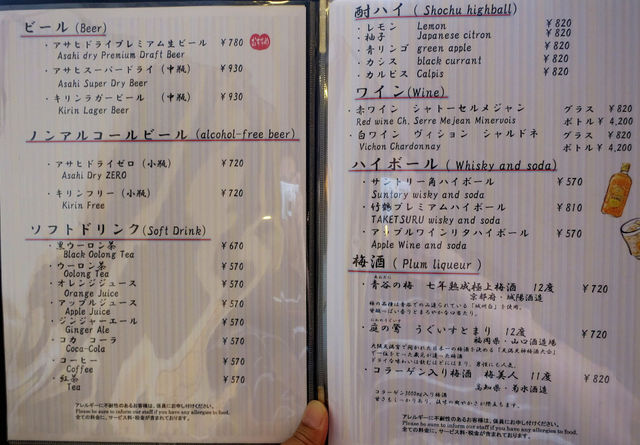 ビール (Beer)
・アサヒドライプレミアム生ビール ￥780 おすすめ
Asahi dry Premium Draft Beer
・アサヒスーパードライ (中瓶) ￥930
Asahi Super Dry Beer
・キリンラガービール (中瓶) ￥930
Kirin Lager Beer
ノンアルコールビール (alcohol-free beer)
・アサヒドライゼロ (小瓶) ￥720
Asahi Dry ZERO
・キリンフリー (小瓶) ￥720
Kirin Free
ソフトドリンク(Soft Drink)
・黒ウーロン茶 ￥670
Black Oolong Tea
・ウーロン茶 ￥570
Oolong Tea
・オレンジジュース ￥570
Orange Juice
・アップルジュース ￥570
Apple Juice
・ジンジャーエール ￥570
Ginger Ale
・コカ コーラ ￥570
Coca-Cola
・コーヒー ￥570
Coffee
・紅茶 ￥570
Tea
アレルギーに不耐性のあるお客様は、係員にお申し付けください。
Please be sure to inform our staff if you have any allergies to food.
全ての料金に、サービス料・税金が含まれております。
酎ハイ ( Shochu highball)
・レモン Lemon ￥820
・柚子 Japanese citron ￥820
・青リンゴ green apple ￥820
・カシス black currant ￥820
・カルピス Calpis ￥820
ワイン(Wine)
・赤ワイン シャトーセルメジャン グラス ￥820
Red wine Ch. Serre Mejean Minervois ボトル￥4,200
・白ワイン ヴィション シャルドネ グラス ￥820
Vichon Chardonnay ボトル￥4,200
ハイボール ( Whisky and soda)
・サントリー角ハイボール ￥570
Suntory wisky and soda
・竹鶴プレミアムハイボール ￥810
TAKETSURU wisky and soda
・アップルワインリタハイボール ￥570
Apple Wine and soda
梅酒 ( Plum liqueur )
・青谷の梅 七年熟成極上梅酒 12度 ￥720
京都府・城陽酒造
・庭の鶯 うぐいすとまり 12度 ￥720
福岡県・山口酒造場
・コラーゲン入り梅酒 梅美人 11度 ￥820
高知県・菊水酒造
コラーゲン1000mg入り梅酒
アレルギーに不耐性のあるお客様は、係員にお申し付けください。
Please be sure to inform our staff if you have any allergies to food.
全ての料金に、サービス料・税金が含まれております。